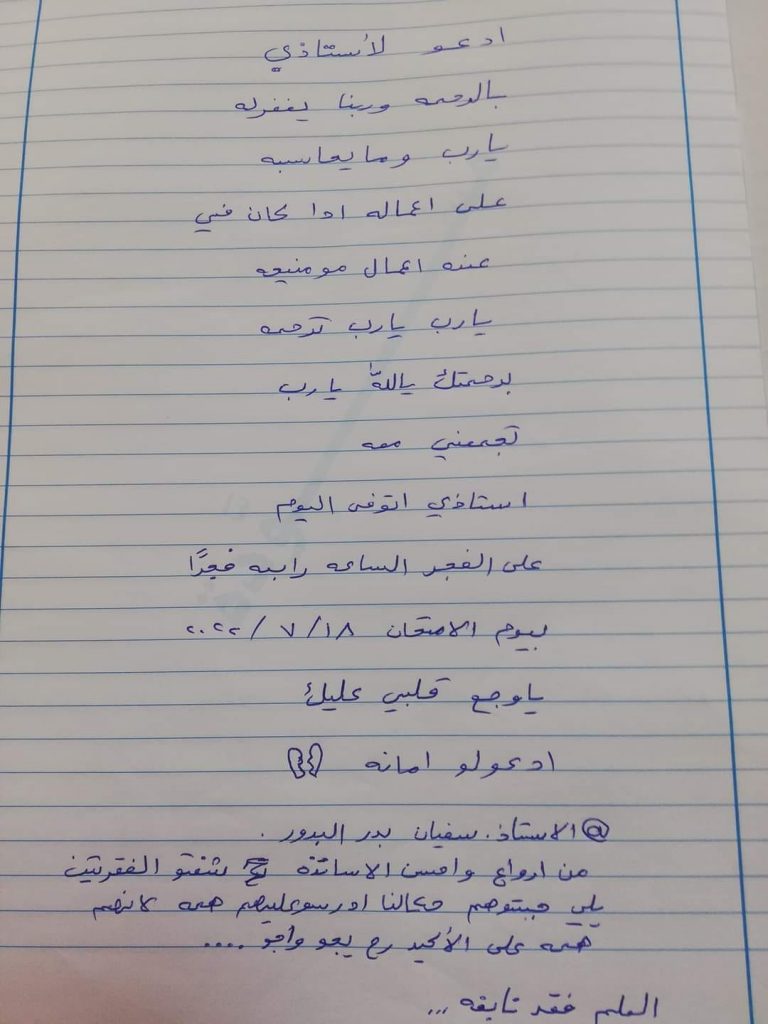 ادعو لأستاذي
بالرحمه وربنا يغفرله
يارب وما يحاسبه
على اعماله اذا كان في
عنده اعمال مو منيحه
يارب يارب ترحمه
برحمتك ياللّٰه يارب
تجمعني معه
استاذي اتوفى اليوم
على الفجر الساعه رابعه فجرًا
بيوم الامتحان ١٨ / ٧ / ٢٠٢٢
ياوجع قلبي عليك
ادعولو امانه
@الاستاذ. سفيان بدر البدور .
من ارواع واحسن الاساتذه شفتو الفقرتين
يلي جبتوهم حكالنا ادرسو عليهم همه لانهم
همه على الأكيد رح يجو واجو ....
العلم فقد تابعه ...